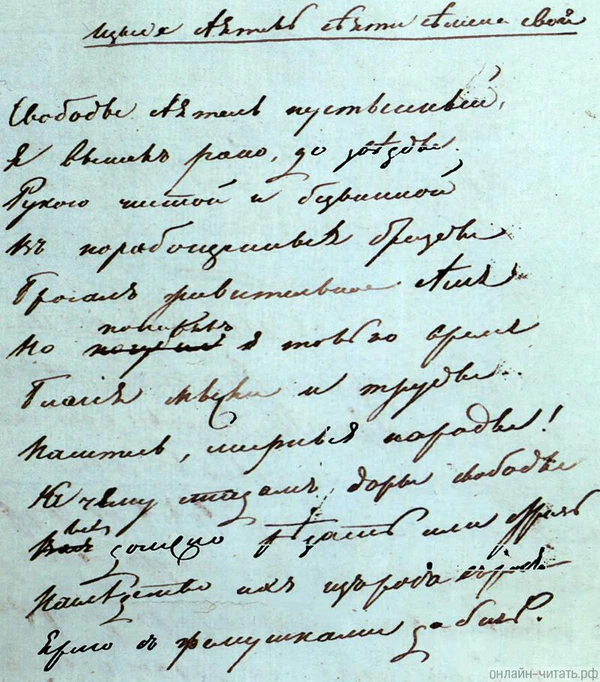 Изыде сѣятель сѣяти сѣмена своя
Свободы сѣятель пустынный,
Я вышелъ рано, до звѣзды
Рукою чистой и безвинной
Въ порабощенныя бразды
Бросалъ живительное сѣмя
Но потерялъ я только время
Благія мысли и труды
Паситесь, мирные народы!
Къ чему стадамъ дары свободы
Ихъ должно рѣзать или стричь
Наслѣдство ихъ изъ рода въ роды
Ярмо съ гремушками да бичъ.
онлайн-читать.рф